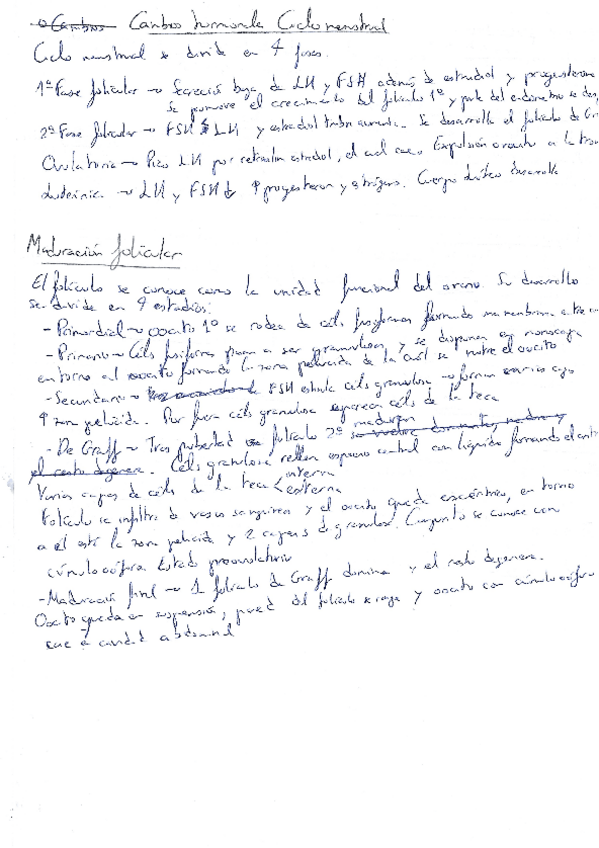 Cambios Cambios hormonales Ciclo menstrual
Ciclo menstrual se divide en 4 fases.
1ª Fase folicular → Secreción baja de LH y FSH además de estradiol y progesterona
Se promueve el crecimiento del folículo 1º y parte del endometrio se
2ª Fase folicular → FSH LH y estradiol aumenta. Se desarrolla el folículo de
Ovulatoria → Pico LH por estradiol, el cual Expulsión ovocito a la
Luteínica → LH y FSH ↓ ↑ progesteron y Cuerpo lúteo desarrolla
Maduración folicular
El folículo se conoce como la unidad funcional del ovario Su desarrollo
se divide en 4 estadios:
- Primordial → ovocito 1º se rodea de céls fusiformes formando una membrana
- Primario → Céls fusiformes pasan a ser granulosa, y se disponen en monocapa
en torno al ovocito formando la zona pelúcida de la cual se nutre el ovocito
- Secundario → FSH estimula céls granulosa → forman varias capas
↑ zona pelúcida. Por fuera céls granulosa aparecen céls de la teca
- De Graff → Tras pubertad folículo 2º maduran
el resto degenera. Céls granulosa rellen espacio central con líquido formando el
Varias capas de céls de la teca < interna
externa
Folículo se infiltra de vasos sanguíneos y el ovocito queda excéntrico, en torno
a él está la zona pelúcida y 2 capas de granulosa. Conjunto se conoce con
cúmulo oóforo. Estado preovulatorio
- Maduración final → 1 folículo de Graff domina y el resto degenera.
Ovocito queda en suspensión, pared del folículo se rasga y ovocito con cúmulo oóforo
cae a cavidad abdominal